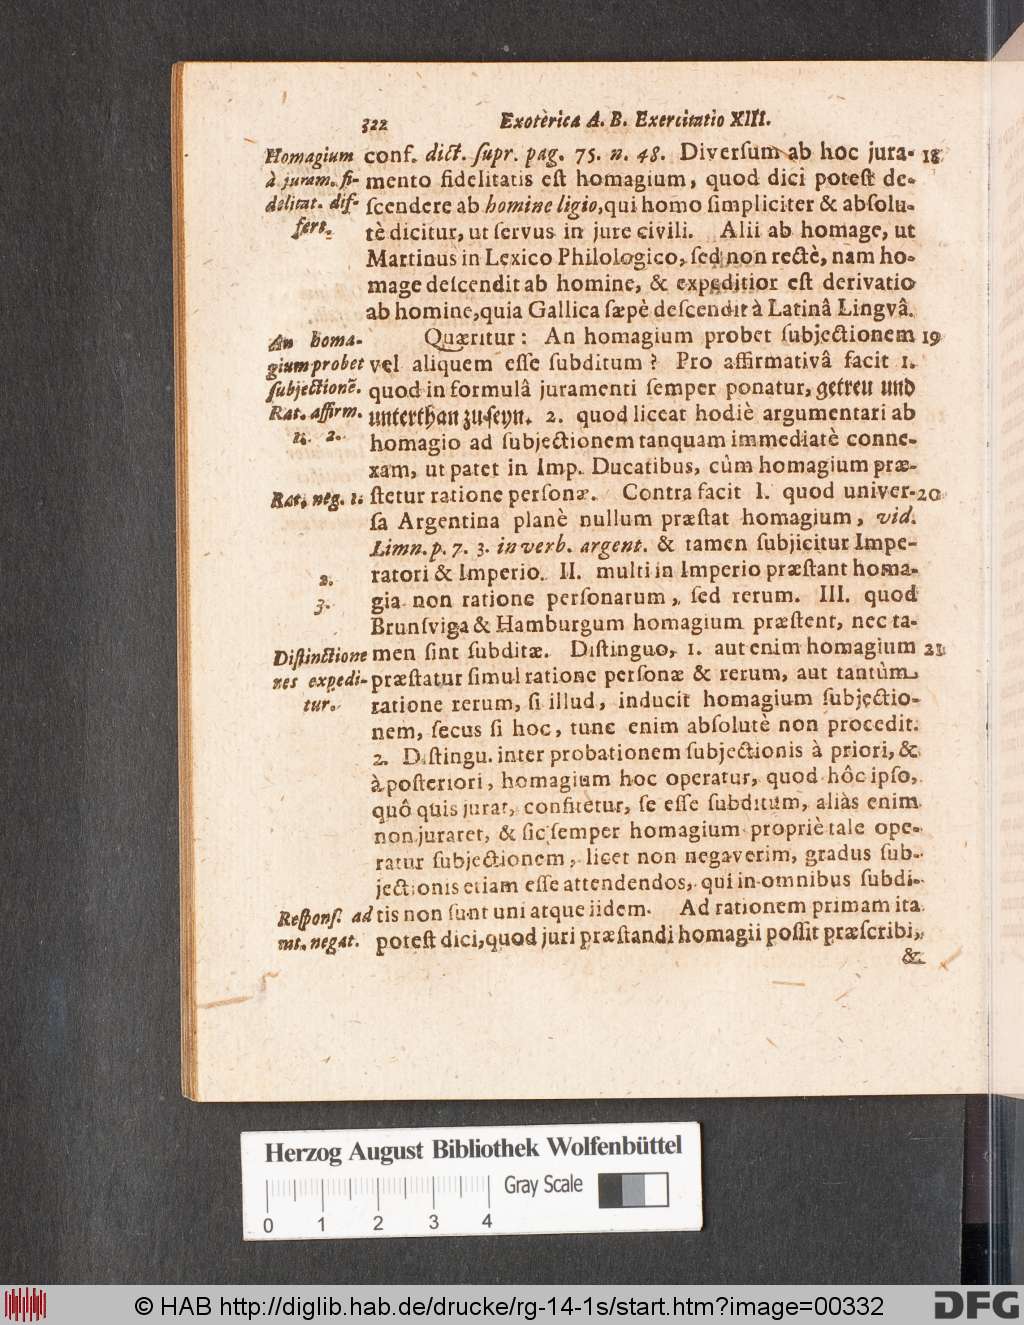 322 Exoterica A. B. Exercitatio XIII.
Homagium conf. dict. ſupr. pag. 75. n. 48. Diverſum ab hoc jura- 18
à juram. fi- mento fidelitatis eſt homagium, quod dici poteſt de-
delitat. dif- ſcendere ab homine ligio, qui homo ſimpliciter & abſolu-
fert. tè dicitur, ut ſervus in jure civili. Alii ab homage, ut
Martinus in Lexico Philologico, ſed non rectè, nam ho-
mage deſcendit ab homine, & expeditior eſt derivatio
ab homine, quia Gallica ſæpè deſcendit à Latinâ Lingvâ.
An homa- Quæritur: An homagium probet ſubjectionem 19
gium probet vel aliquem eſſe ſubditum? Pro affirmativâ facit 1.
ſubjectionẽ. quod in formulâ juramenti ſemper ponatur, getreu und
Rat. affirm. unterthan zu ſeyn. 2. quod liceat hodiè argumentari ab
1. 2. homagio ad ſubjectionem tanquam immediatè conne-
xam, ut patet in Imp. Ducatibus, cùm homagium præ-
Rat. neg. 1. ſtetur ratione perſonæ. Contra facit I. quod univer- 20
ſa Argentina planè nullum præſtat homagium, vid.
Limn. p. 7. 3. in verb. argent. & tamen ſubjicitur Impe-
2. ratori & Imperio. II. multi in Imperio præſtant homa-
3. gia non ratione perſonarum, ſed rerum. III. quod
Brunſviga & Hamburgum homagium præſtent, nec ta-
Diſtinctione men ſint ſubditæ. Diſtinguo, 1. aut enim homagium 21
nes expedi- præſtatur ſimul ratione perſonæ & rerum, aut tantùm
tur. ratione rerum, ſi illud, inducit homagium ſubjectio-
nem, ſecus ſi hoc, tunc enim abſolutè non procedit.
2. Diſtingu. inter probationem ſubjectionis à priori, &
à poſteriori, homagium hoc operatur, quod hôc ipſo,
quô quis jurat, confitetur, ſe eſſe ſubditum, aliàs enim
non juraret, & ſic ſemper homagium propriè tale ope-
ratur ſubjectionem, licet non negaverim, gradus ſub-
jectionis etiam eſſe attendendos, qui in omnibus ſubdi-
Reſponſ. ad tis non ſunt uni atque iidem. Ad rationem primam ita
nt. negat. poteſt dici, quod juri præſtandi homagii poſſit præſcribi,
&
Herzog August Bibliothek Wolfenbüttel
Gray Scale
0 1 2 3 4
© HAB http://diglib.hab.de/drucke/rg-14-1s/start.htm?image=00332
DFG